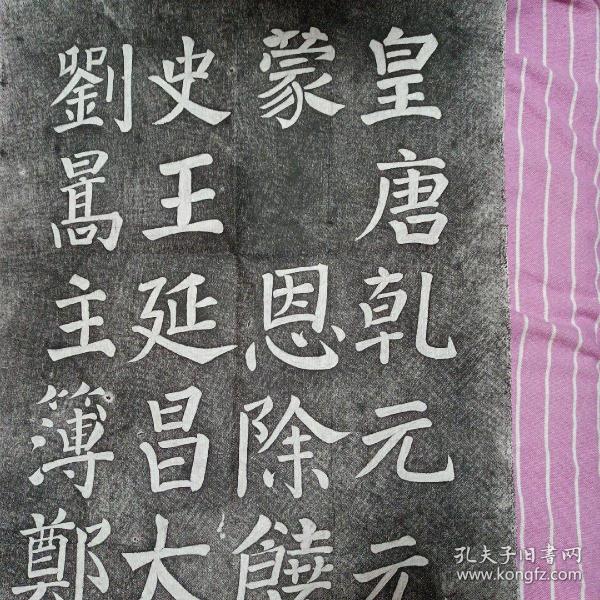 皇唐乾元元
蒙 恩除饒
史王延昌大
劉暠主簿鄭
孔夫子旧书网
www.kongfz.com